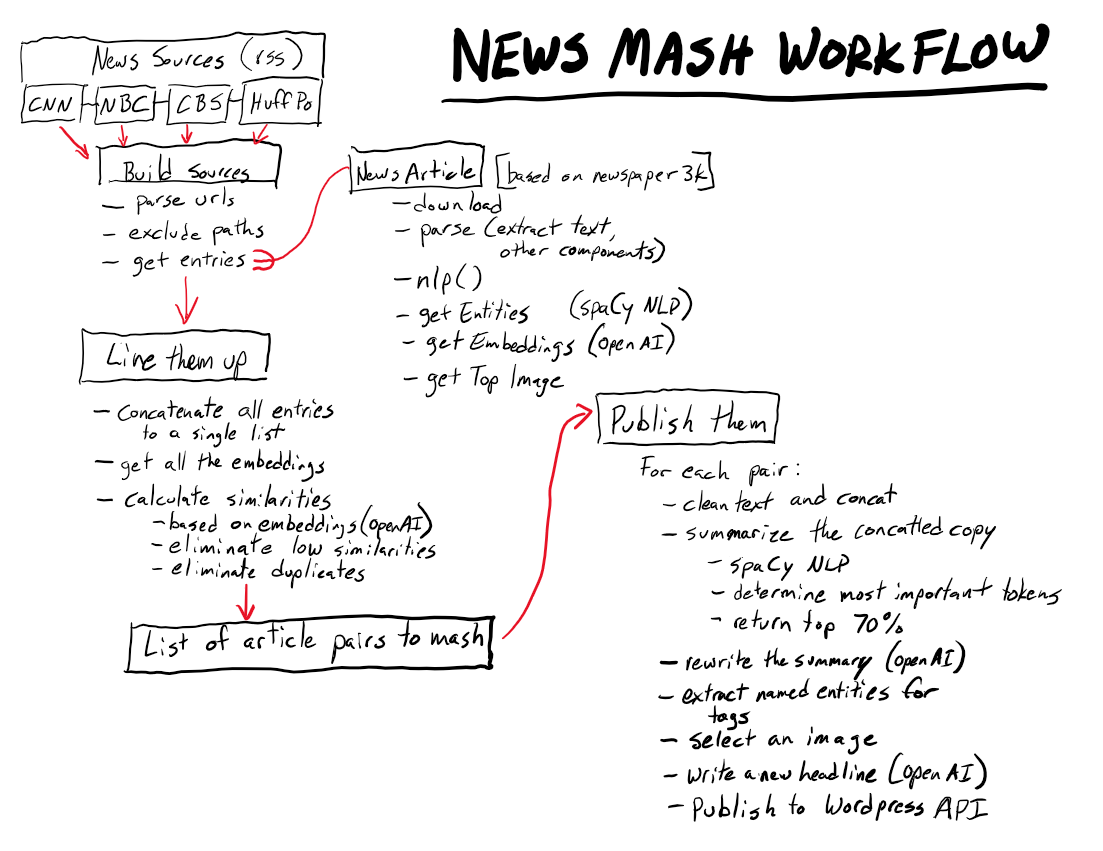 NEWS MASH WORKFLOW
News Sources (rss)
CNN NBC CBS HuffPo
Build Sources
- parse urls
- exclude paths
- get entries
News Article [based on newspaper 3k]
- download
- parse (extract text,
other components)
- nlp()
- get Entities (spaCy NLP)
- get Embeddings (OpenAI)
- get Top Image
Line them up
- Concatenate all entries
to a single list
- get all the embeddings
- Calculate similarities
- based on embeddings (OpenAI)
- eliminate low similarities
- eliminate duplicates
List of article pairs to mash
Publish them
For each pair:
- clean text and concat
- summarize the concatted copy
- spaCy NLP
- determine most important tokens
- return top 70%
- rewrite the summary (OpenAI)
- extract named entities for
tags
- select an image
- write a new headline (OpenAI)
- Publish to Wordpress API